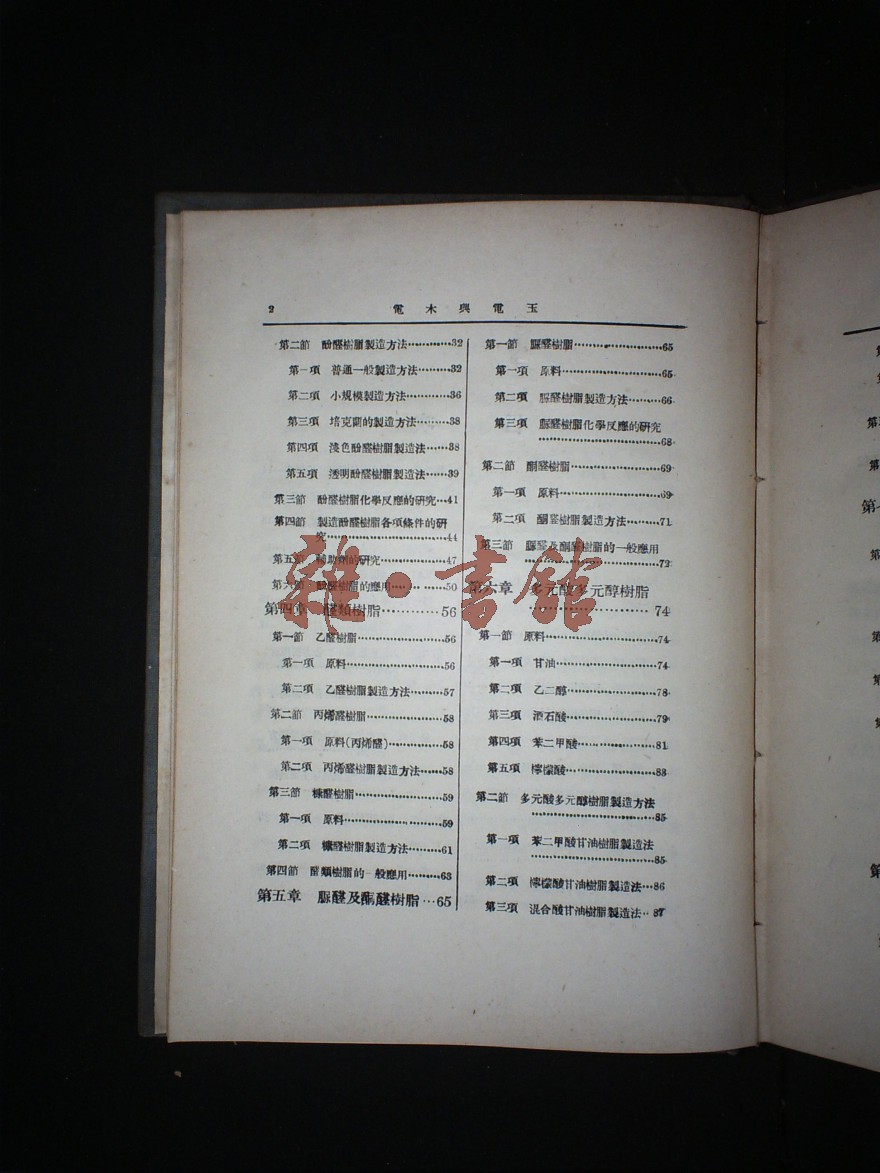 2
電木與電玉
第二節 酚醛樹脂製造方法…………32
第一項 普通一般製造方法………32
第二項 小規模製造方法…………36
第三項 培克蘭的製造方法………38
第四項 淺色酚醛樹脂製造法……38
第五項 透明酚醛樹脂製造法……39
第三節 酚醛樹脂化學反應的研究…41
第四節 製造酚醛樹脂各項條件的研
究……………………………44
第五節 輔助劑的研究………………47
第六節 酚醛樹脂的應用……………50
第四章 醛類樹脂…………56
第一節 乙醛樹脂……………………56
第一項 原料………………………56
第二項 乙醛樹脂製造方法………57
第二節 丙烯醛樹脂…………………58
第一項 原料(丙烯醛)……………58
第二項 丙烯醛樹脂製造方法……58
第三節 糠醛樹脂……………………59
第一項 原料………………………59
第二項 糠醛樹脂製造方法………61
第四節 醛類樹脂的一般應用………63
第五章 脲醛及酮醛樹脂…65
第一節 脲醛樹脂……………………65
第一項 原料………………………65
第二項 脲醛樹脂製造方法………66
第三項 脲醛樹脂化學反應的研究
……………………………68
第二節 酮醛樹脂……………………69
第一項 原料………………………69
第二項 酮醛樹脂製造方法………71
第三節 脲醛及酮醛樹脂的一般應用
……………………………72
第六章 多元酸多元醇樹脂
………………74
第一節 原料…………………………74
第一項 甘油………………………74
第二項 乙二醇……………………78
第三項 酒石酸……………………79
第四項 苯二甲酸…………………81
第五項 檸檬酸……………………83
第二節 多元酸多元醇樹脂製造方法
……………………………85
第一項 苯二甲酸甘油樹脂製造法
……………………………85
第二項 檸檬酸甘油樹脂製造法…86
第三項 混合酸甘油樹脂製造法…87
雜·書館